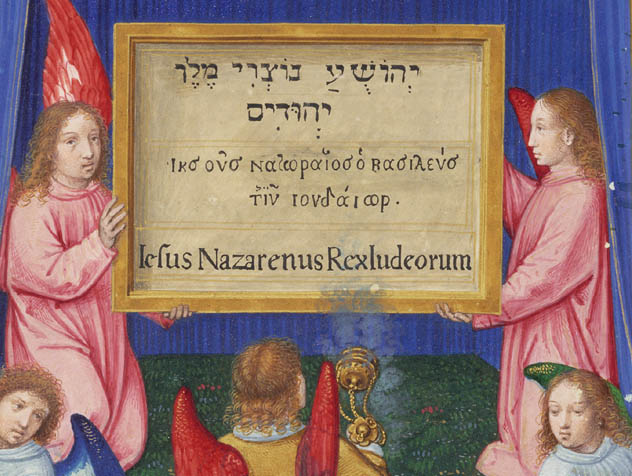 יְהוֹשֻׁעַ נוֹצְרִי מֶלֶךְ
יְהוּדִים
·Ἰκσ οὖσ ναζωραῖοσ ὁ βασιλεύσ
τῖῦ ιουδάιωρ.
Iesus Nazarenus Rex Iudeorum